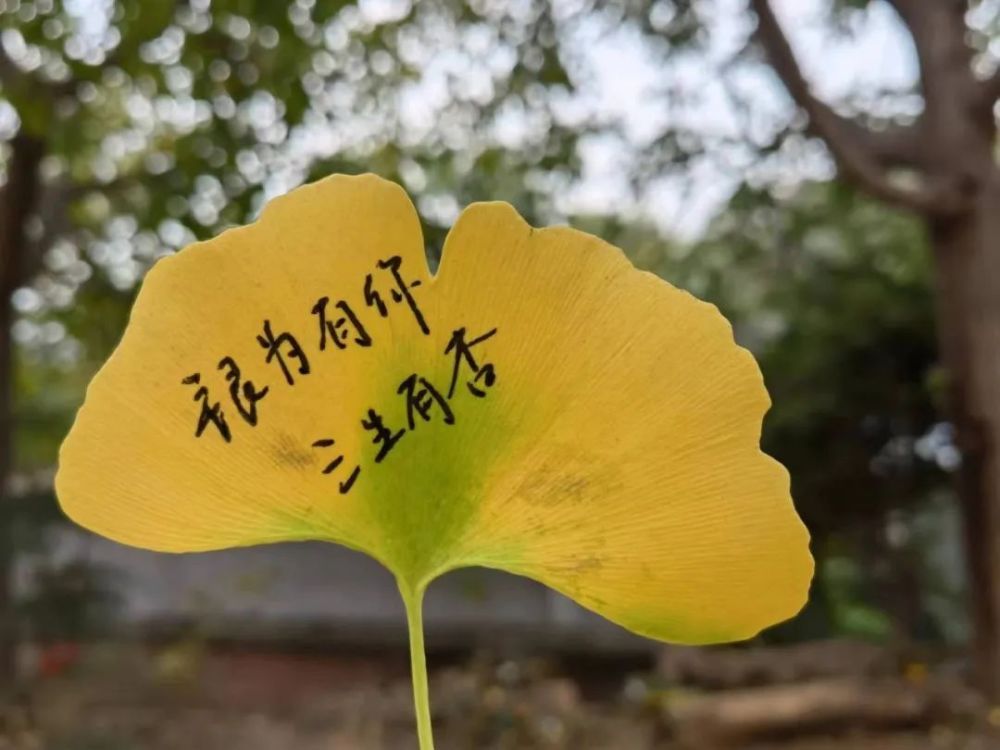 银为有你
三生有杏